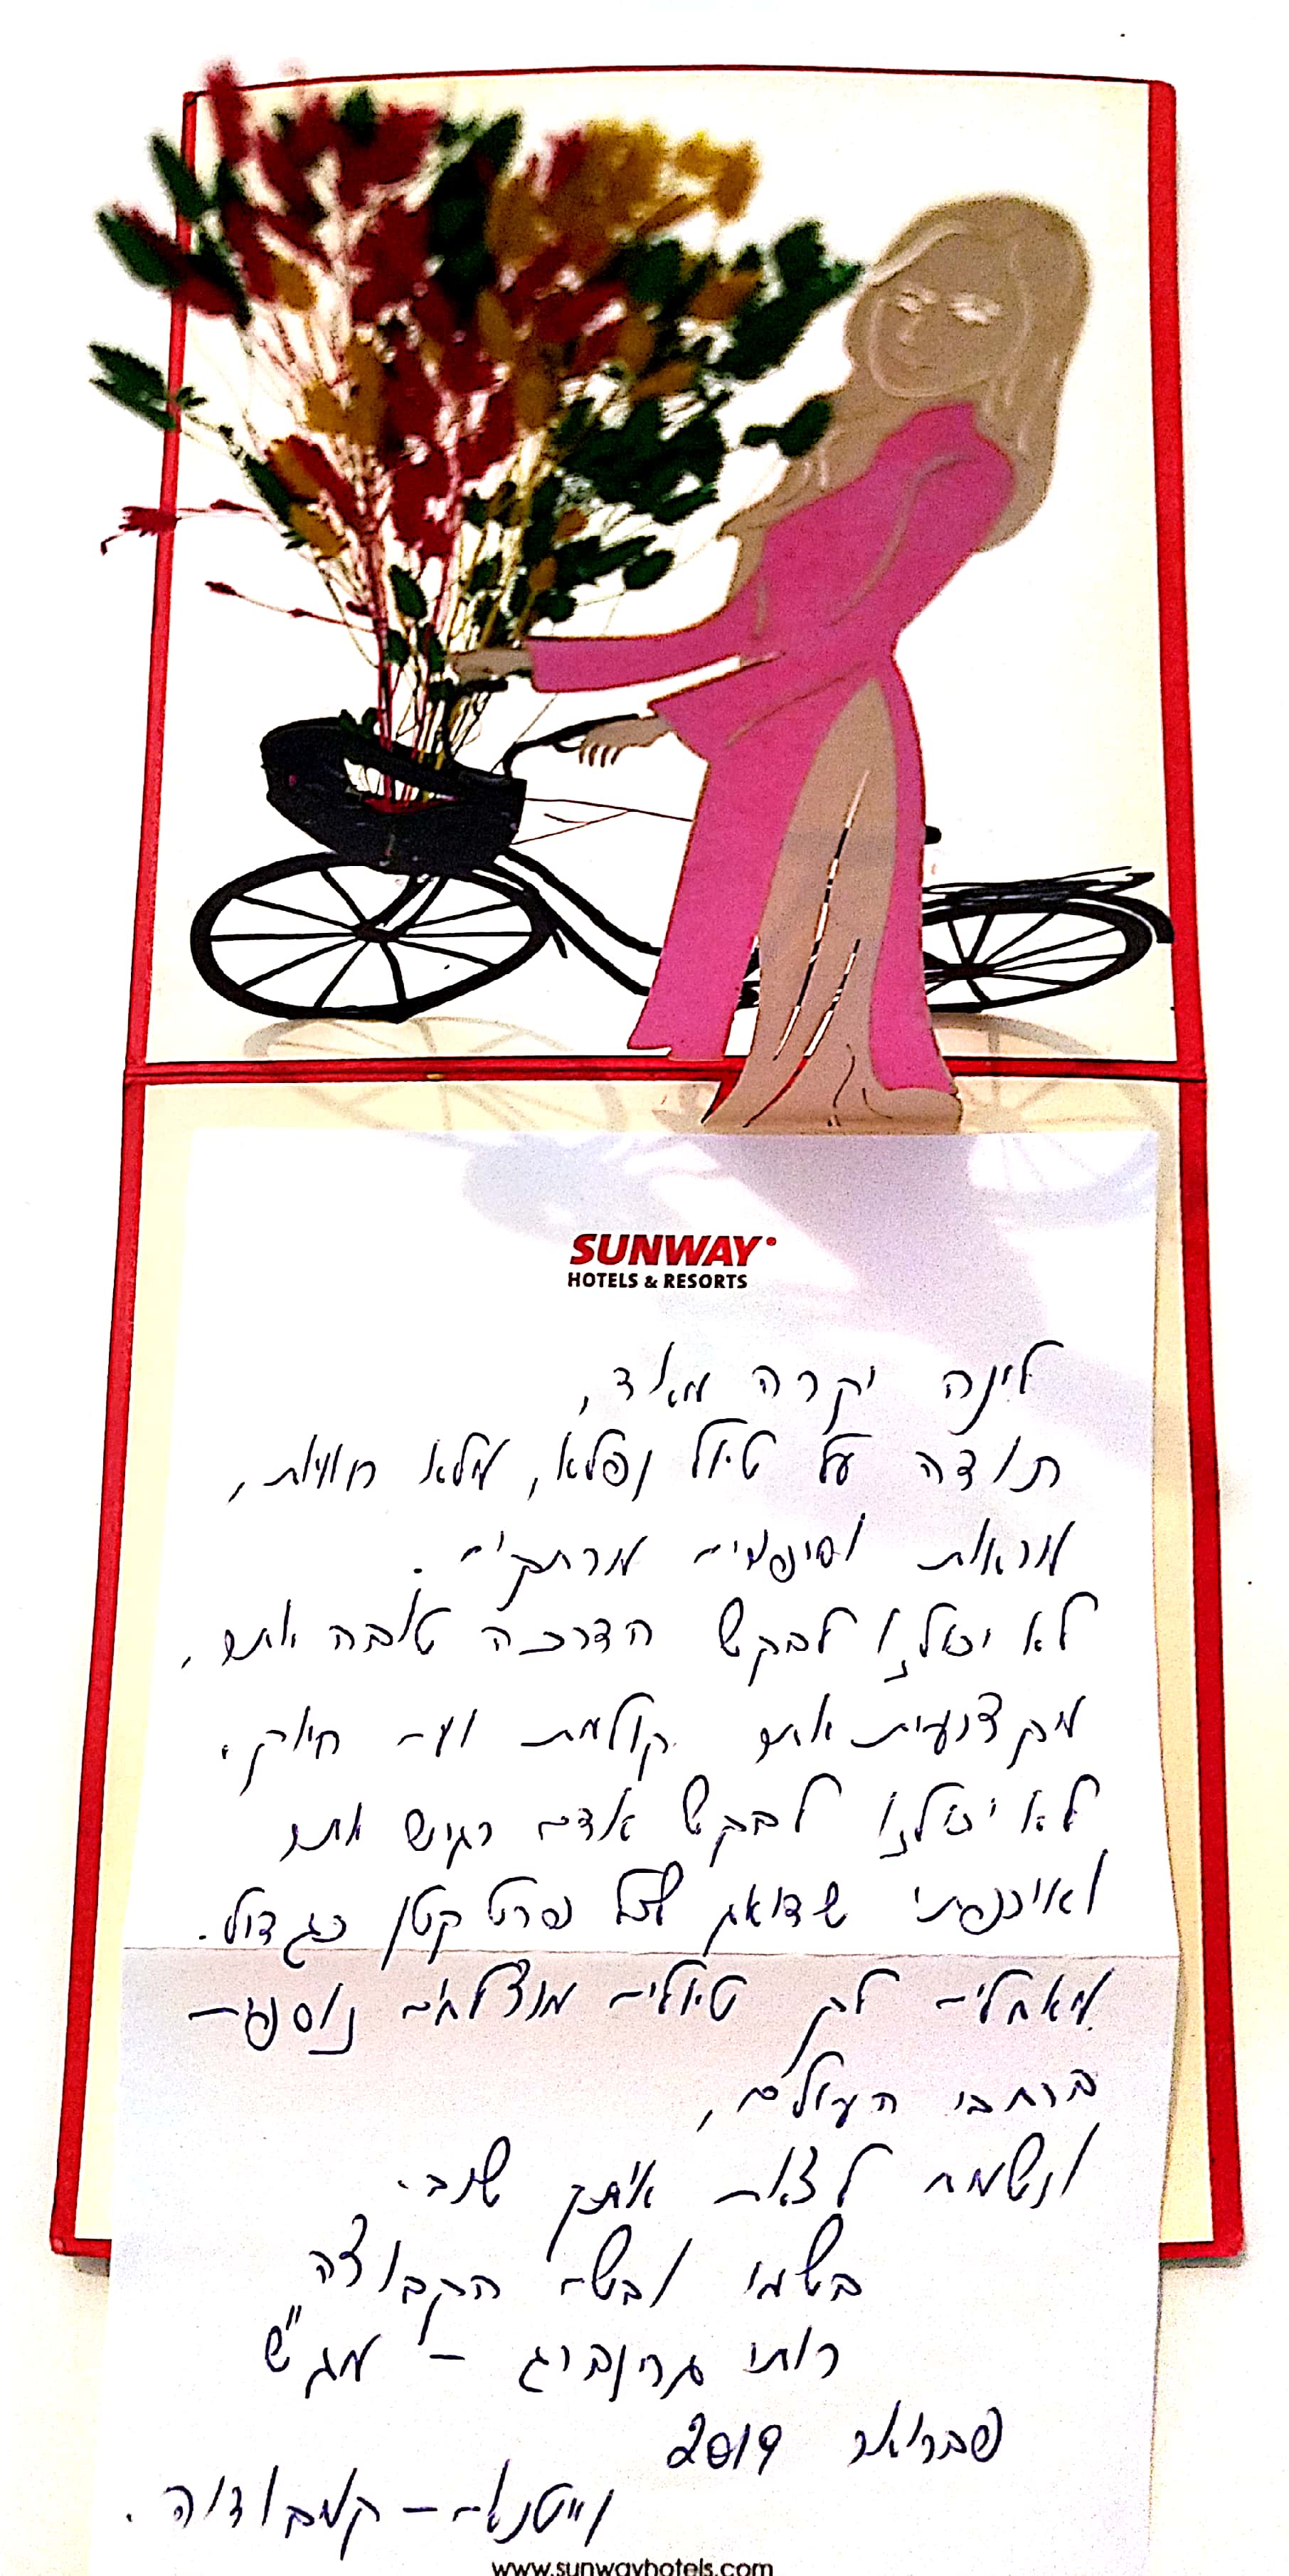 SUNWAY
HOTELS & RESORTS
לינה יקרה מאוד,
תודה על טיול נפלא, מלא חוויות,
מראות וסיפורים מרתקים.
לא יכולנו לבקש הדרכה טובה יותר,
מקצועית יותר קולחת ועם חיוך.
לא יכולנו לבקש אדם רגיש יותר
ואיכפתי שדואג לכל פרט קטן כגדול.
מאחלים לך טיולים מוצלחים נוספים
ברחבי העולם,
ונשמח לצאת איתך שוב.
בשמי ובשם הקבוצה
רותי גרינברג - מג"ש
פברואר 2019
וייטנאם - קמבודיה.
www.sunwayhotels.com